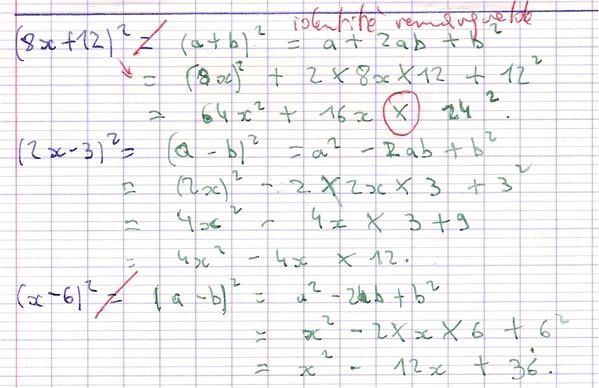 identité remarquable
(8x+12)² = (a+b)² = a + 2ab + b²
= (8x)² + 2 × 8x × 12 + 12²
= 64x² + 16x × 24².
(2x-3)² = (a-b)² = a² - 2ab + b²
= (2x)² - 2 × 2x × 3 + 3²
= 4x² - 4x × 3 + 9
= 4x² - 4x × 12.
(x-6)² = (a-b)² = a² - 2ab + b²
= x² - 2 × x × 6 + 6²
= x² - 12x + 36.